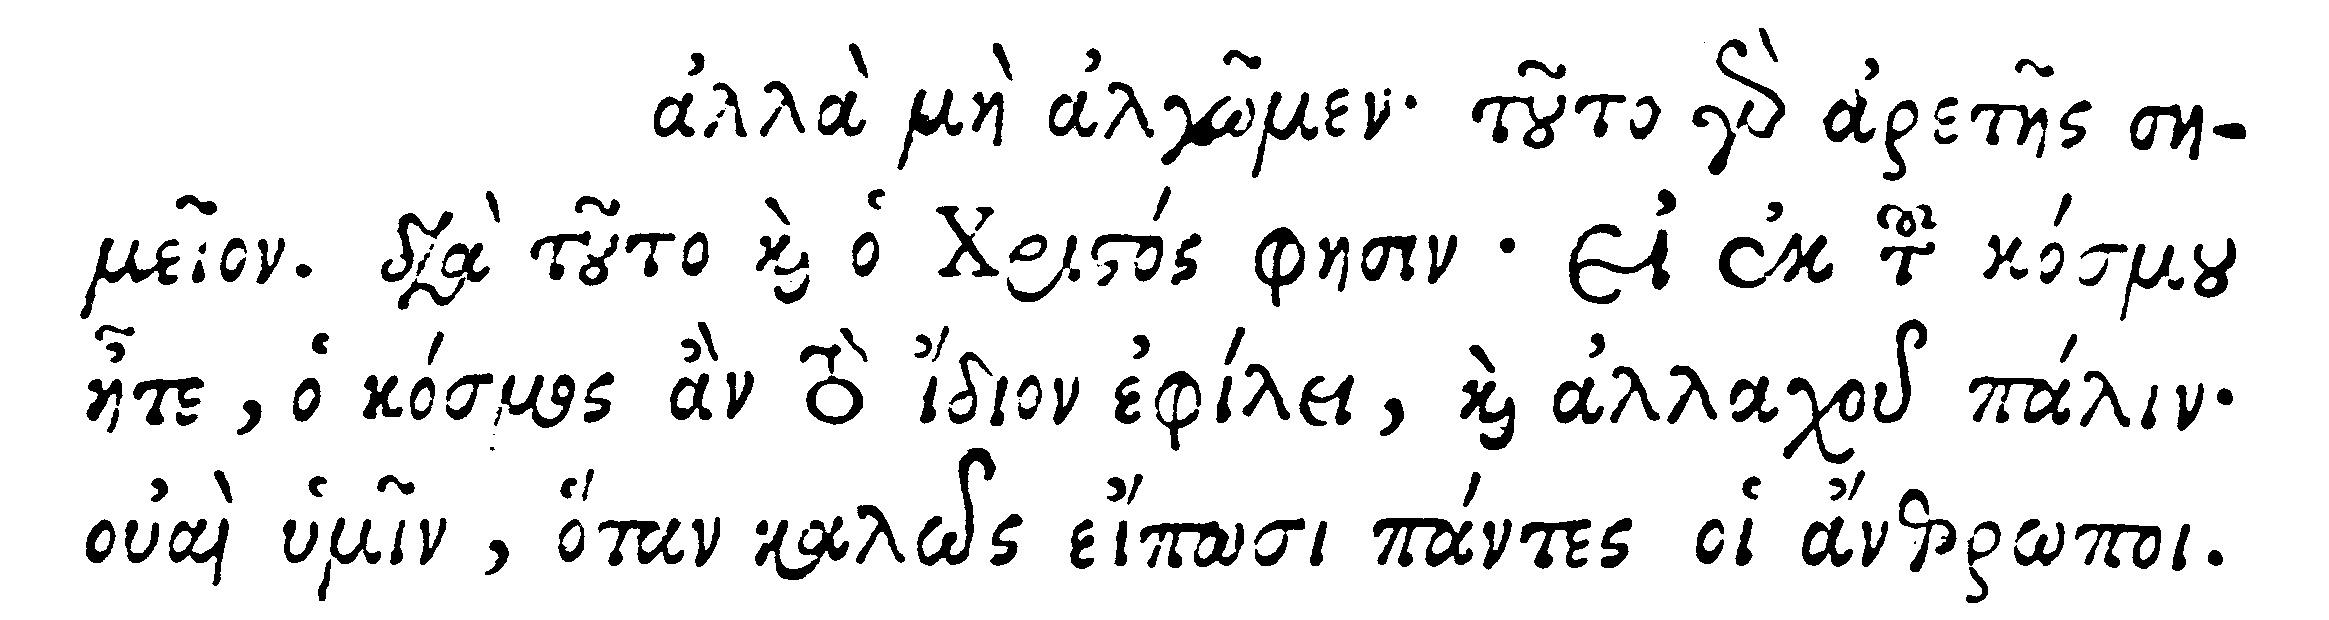 ἀλλὰ μὴ ἀλγῶμεν· τοῦτο γὰρ ἀρετῆς ση-
μεῖον. διὰ τοῦτο καὶ ὁ Χριστός φησιν· Εἰ ἐκ τοῦ κόσμου
ἦτε, ὁ κόσμος ἂν τὸ ἴδιον ἐφίλει, καὶ ἀλλαχοῦ πάλιν·
οὐαὶ ὑμῖν, ὅταν καλῶς εἴπωσι πάντες οἱ ἄνθρωποι.